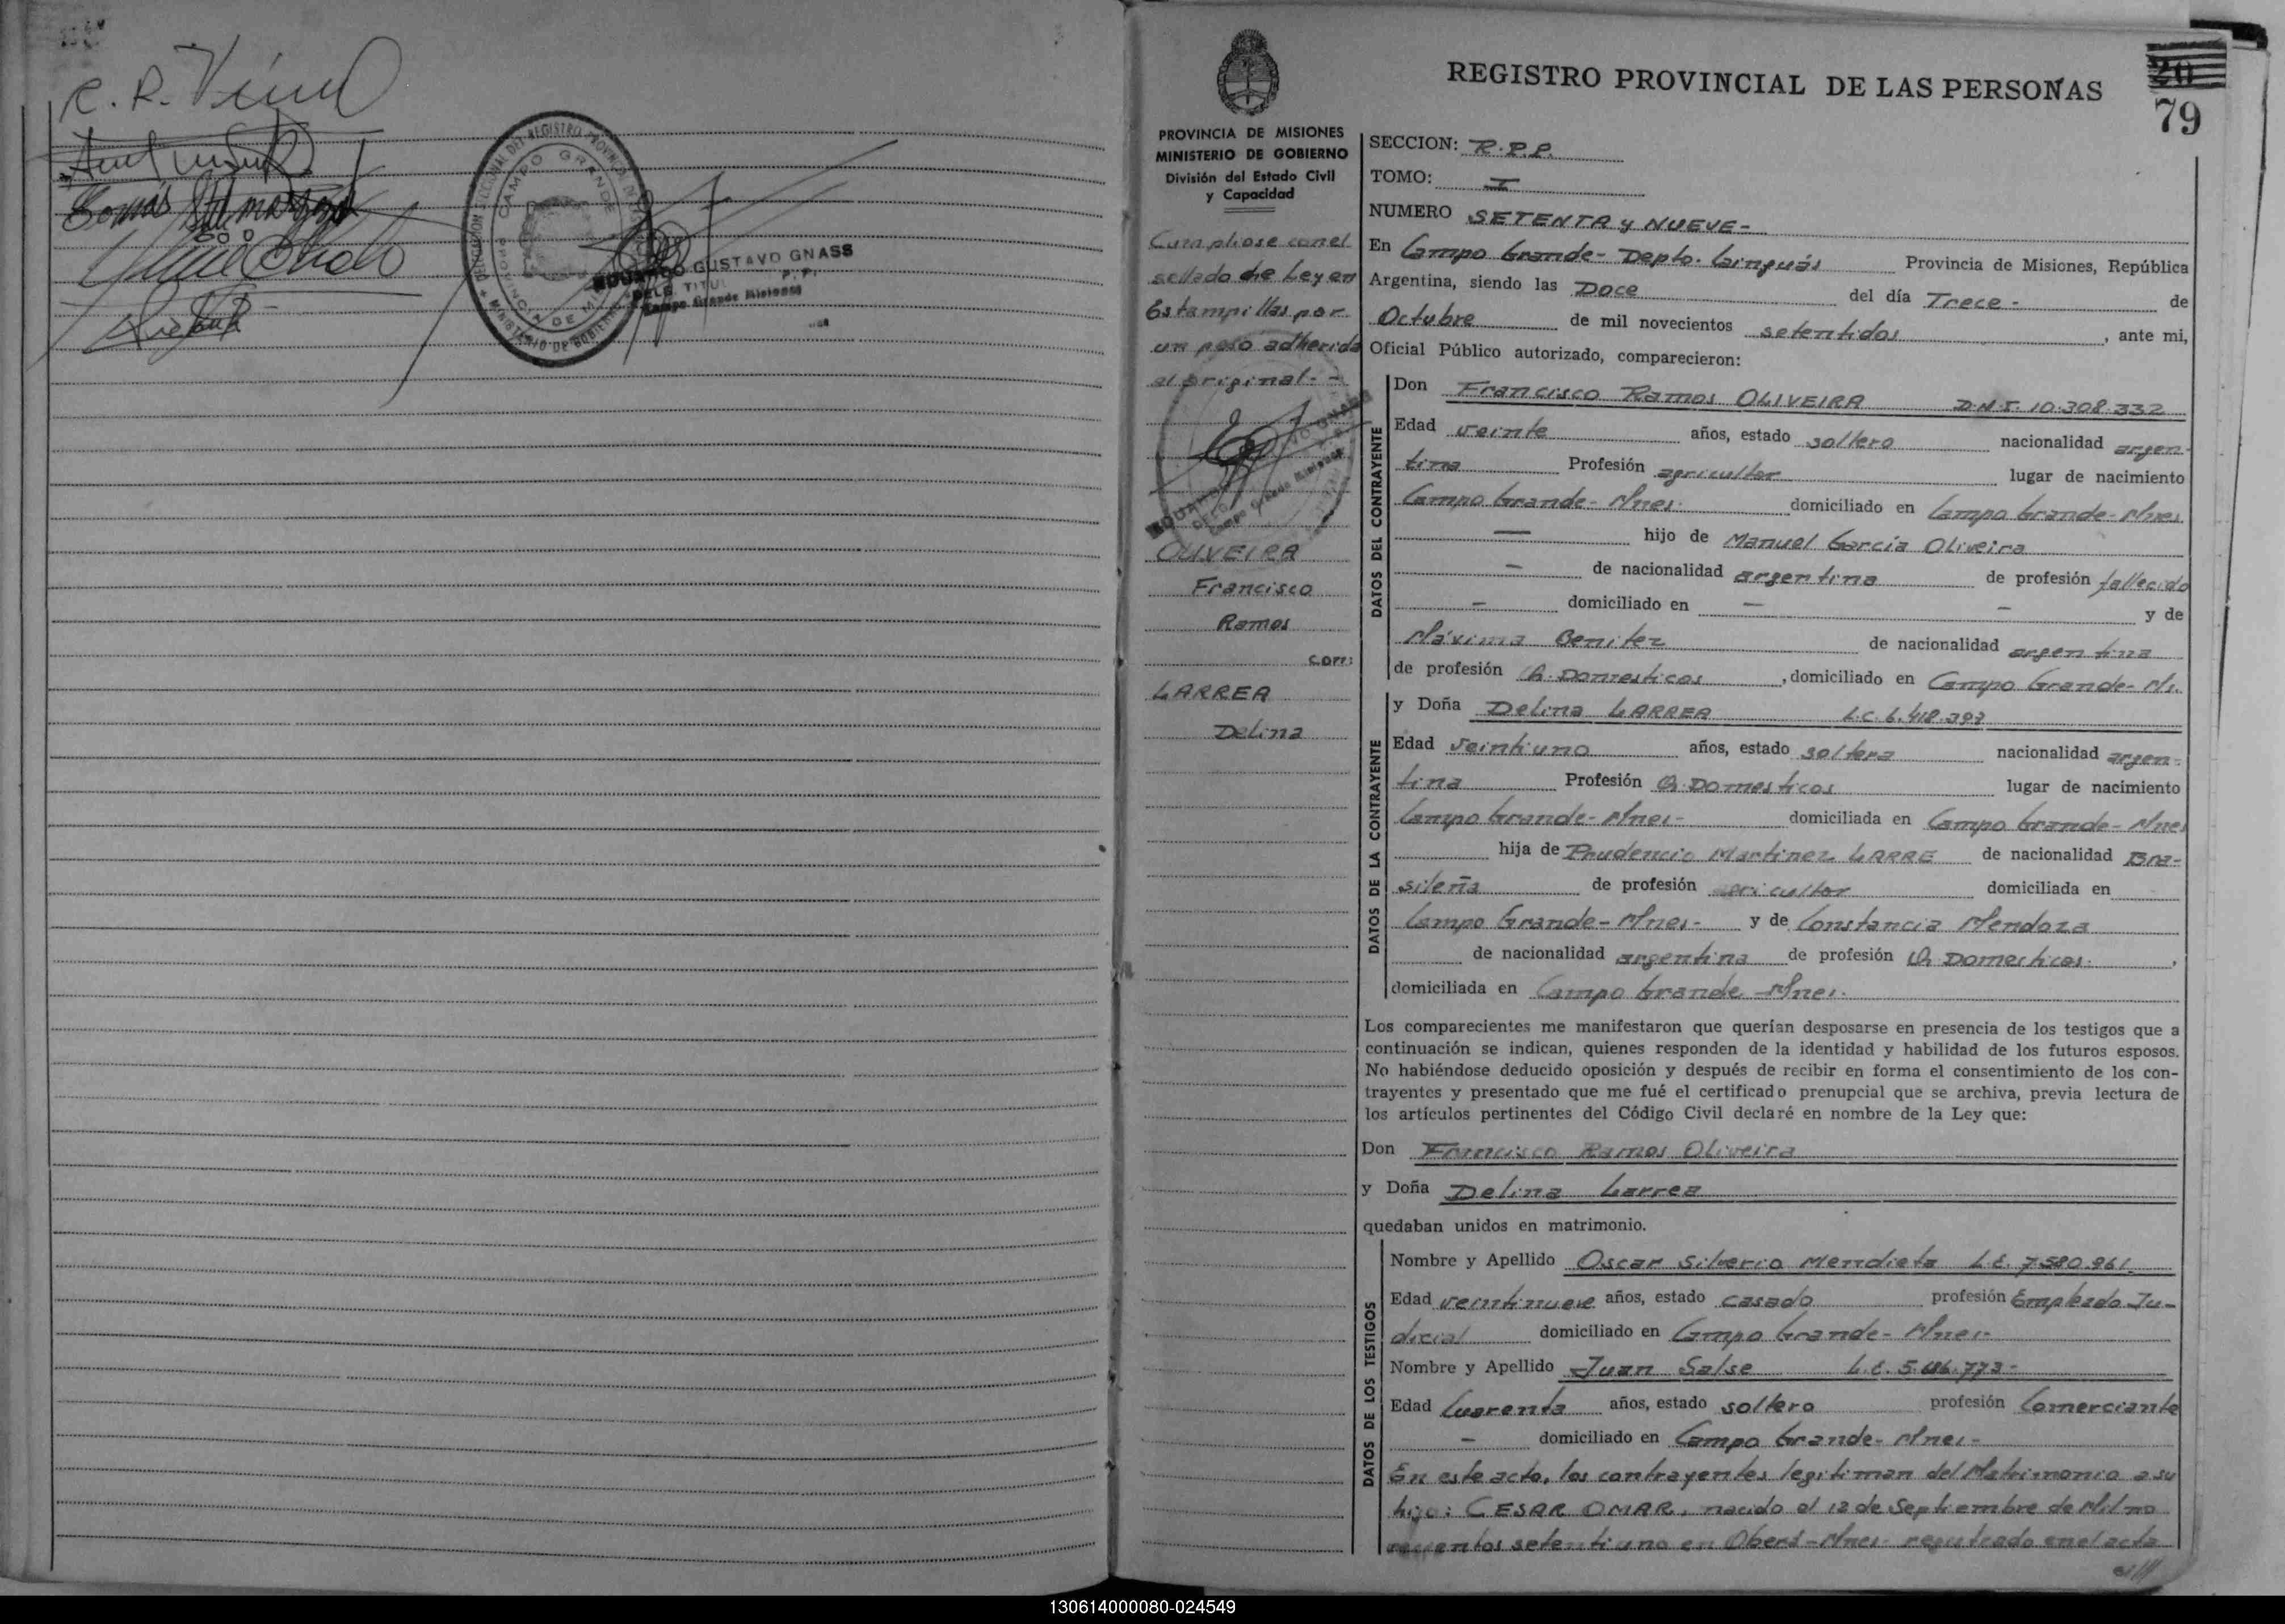 REGISTRO PROVINCIAL DE LAS PERSONAS
20
79
PROVINCIA DE MISIONES
MINISTERIO DE GOBIERNO
División del Estado Civil
y Capacidad
Cumpliose con el
sellado de Ley en
Estampillas por
un peso adherida
al original.-
OLIVEIRA
Francisco
Ramos
con:
LARREA
Delina
SECCION: R.P.P.
TOMO: I
NUMERO SETENTA y NUEVE-
En Campo Grande- Depto. Cainguás Provincia de Misiones, República
Argentina, siendo las Doce del día Trece - de
Octubre de mil novecientos setentidos, ante mi,
Oficial Público autorizado, comparecieron:
DATOS DEL CONTRAYENTE
Don Francisco Ramos OLIVEIRA D.N.I. 10.308.332
Edad veinte años, estado soltero nacionalidad argen-
tina Profesión agricultor lugar de nacimiento
Campo Grande- Mnes. domiciliado en Campo Grande- Mnes
— hijo de Manuel García Oliveira
- de nacionalidad argentina de profesión fallecido
- domiciliado en — - y de
Máxima Benitez de nacionalidad argentina
de profesión Q. Domesticos, domiciliado en Campo Grande- Ms.
DATOS DE LA CONTRAYENTE
y Doña Delina LARREA L.C. 6.418.397
Edad Veintiuno años, estado soltera nacionalidad argen-
tina Profesión Q. Domesticos lugar de nacimiento
Campo Grande- Mnes- domiciliada en Campo Grande- Mnes
hija de Prudencio Martinez LARRE de nacionalidad Bra-
sileña de profesión agricultor domiciliada en
Campo Grande- Mnes- y de Constancia Mendoza
de nacionalidad argentina de profesión Q. Domesticos.,
domiciliada en Campo Grande -Mnes.
Los comparecientes me manifestaron que querían desposarse en presencia de los testigos que a
continuación se indican, quienes responden de la identidad y habilidad de los futuros esposos.
No habiéndose deducido oposición y después de recibir en forma el consentimiento de los con-
trayentes y presentado que me fué el certificado prenupcial que se archiva, previa lectura de
los artículos pertinentes del Código Civil declaré en nombre de la Ley que:
Don Francisco Ramos Oliveira
y Doña Delina Larrea
quedaban unidos en matrimonio.
DATOS DE LOS TESTIGOS
Nombre y Apellido Oscar Silverio Mendieta L.E. 7.580.961_
Edad veintinueve años, estado casado profesión Empleado Ju-
dicial domiciliado en Campo Grande- Mnes-
Nombre y Apellido Juan Salse L.E.
Edad Cuarenta años, estado soltero profesión Comerciante
- domiciliado en Campo Grande- Mnes-
En este acto, los contrayentes legitiman del Matrimonio a su
hijo: CESAR OMAR, nacido el 12 de Septiembre de Mil no
vecientos setentiuno en Oberá-Mnes- registrado en el acta
EDUARDO GUSTAVO GNASS
DELG. TITUL
Campo Grande Misiones
130614000080-024549